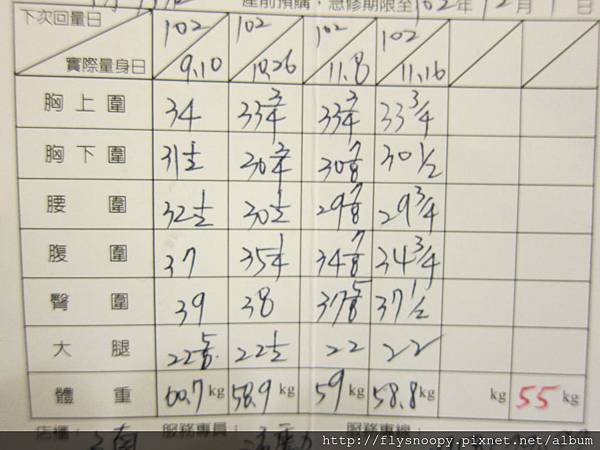 產前預購，急修期限至102年12月1日
下次回量日 102 102 102 102
實際量身日 9.10 10.26 11.8 11.16
胸上圍 34 33 3/4 33 3/4 33 3/4
胸下圍 31 1/2 30 3/4 30 7/8 30 1/2
腰圍 32 1/2 30 1/2 29 7/8 29 3/4
腹圍 37 35 1/4 34 7/8 34 3/4
臀圍 39 38 37 5/8 37 1/2
大腿 22 5/8 22 1/2 22 22
體重 60.7kg 58.9kg 59kg 58.8kg kg 55kg
店櫃： 服務專員： 服務專線：
http://flysnoopy.pixnet.net/album